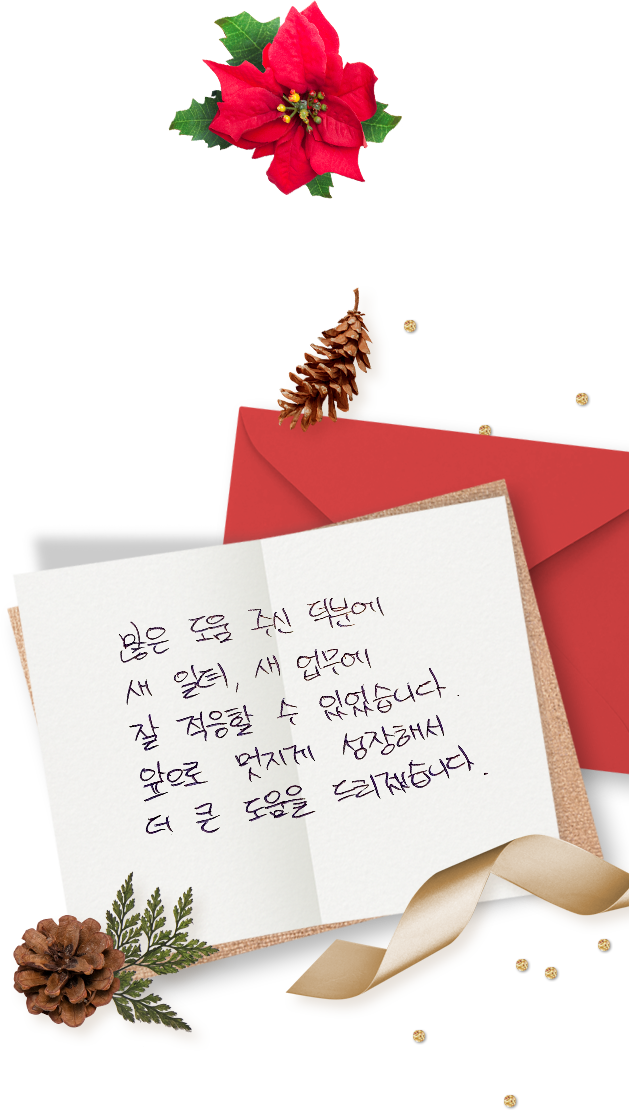 많은 도움 주신 덕분에
새 일터, 새 업무에
잘 적응할 수 있었습니다.
앞으로 멋지게 성장해서
더 큰 도움을 드리겠습니다.